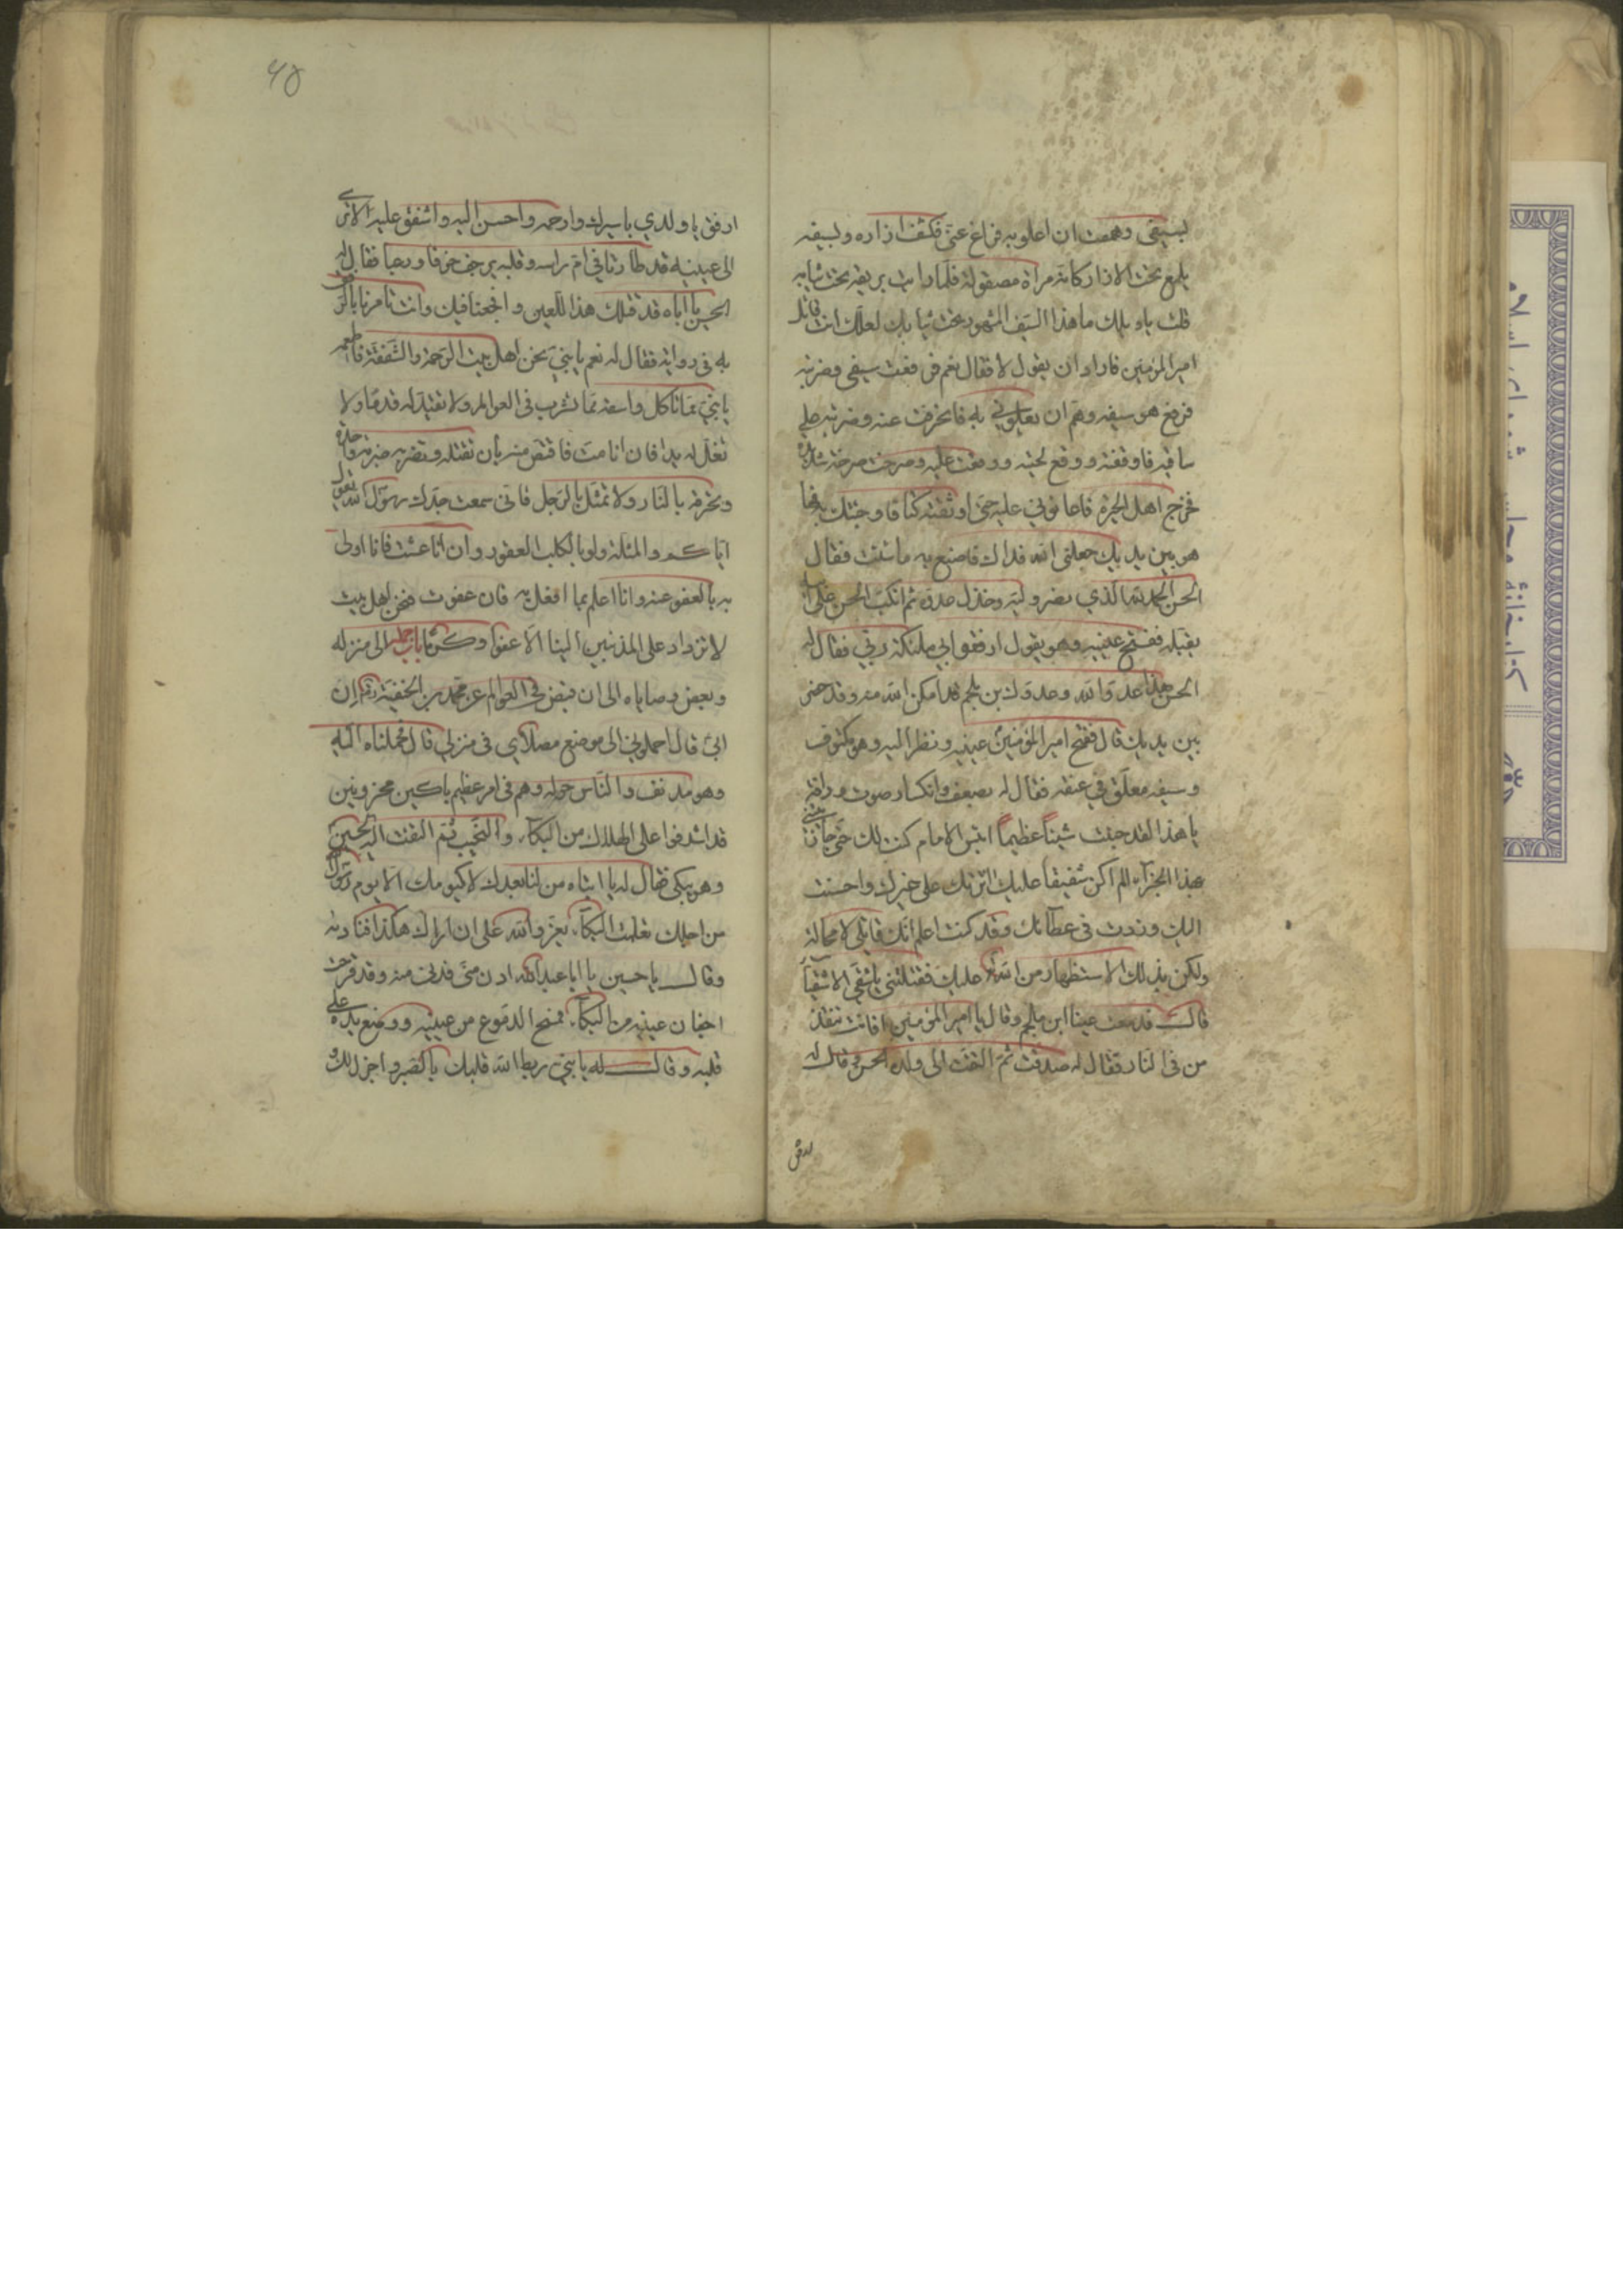 بسيفى وهممت ان اعلو به فراغ عنّي فكشف ازاره وبسيفه
يلمع تحت الازار كانه مراة مصقولة فلمّا رايت بريقه تحت ثيابه
قلت يا ويلك ما هذا السّيف المشهور تحت ثيابك لعلّك انت قاتل
امير المؤمنين فاراد ان يقول لا فقال نعم فرفعت سيفى وضربته
فرفع هو سيفه وهمّ ان يعلوني به فانحرفت عنه وضربته على
ساقيه فاوقفته ووقع لحينه ووقعت عليه وصرخت صرخة شديدة
فخرج اهل الحيرة فاعانوني عليه حتى اوثقته كتافا وجئتك به فها
هو بين يديك جعلنى الله فداك فاصنع به ما شئت فقال
الحسن الحمد لله الّذي نصر وليّه وخذل عدوّه ثم انكبّ الحسن على ابيه
يقبّله ففتح عينيه وهو يقول ارفقوا بي ملئكة ربّي فقال له
الحسن هذا عدوّ الله وعدوّك بن ملجم قد امكن الله منه وقد حضر
بين يديك قال ففتح امير المؤمنين عينيه ونظر اليه وهو مكتوف
وسيفه معلّق في عنقه فقال له بضعف وانكسار صوت ورافة
يا هذا لقد جئت شيئاً عظيماً ابئس الامام كنت لك حتى جازيتني
بهذا الجزآء الم اكن شفيقاً عليك اثرتك على غيرك واحسنت
اليك وزدت في عطآئك وقد كنت اعلم انّك قاتلى لا محالة
ولكن بذلك الاستظهار من الله عليك فقتلتني يا شقى الاشقيآء
قال فدمعت عينا ابن ملجم وقال يا امير المؤمنين افانت تنقذ
من في النار فقال له صدقت ثمّ التفت الى ولده الحسن وقال له
ارفق
ارفق يا ولدي باسيرك وارحمه واحسن اليه واشفق عليه الا ترى
الى عينيه قد طارتا في امّ راسه وقلبه يرجف خوفا ورعبا فقال له
الحسن يا اباه قد قتلك هذا اللّعين وافجعنا فيك وانت تامرنا بالرّفق
به في رواية فقال له نعم يا بنيّ نحن اهل بيت الرّحمة والشّفقة فاطعمه
يا بنيّ ممّا تاكل واسقه ممّا تشرب في العوالم ولا تقيّد له قدماً ولا
تغلّ له يدا فان انا متّ فاقتصّ منه بان تقتله وتضربه ضربة واحدة
وتحرقه بالنّار ولا تمثّل بالرّجل فانّي سمعت جدّك رسول الله يقول
ايّاكم والمثلة ولو بالكلب العقور وان انا عشت فانا اولى
به بالعفو عنه وانا اعلم بما افعل به فان عفوت فنحن اهل بيت
لا نزداد على المذنبين الينا الّا عفواً وكرماً باب حمله الى منزله
وبعض وصاياه الى ان قبض في العوالم عن محمّد بن الحنفيّة ان
ابي قال احملوني الى موضع مصلّاي في منزلي قال فحملناه اليه
وهو مدنف والنّاس حوله وهم في امر عظيم باكين محزونين
قد اشرفوا على الهلاك من البكآء والنّحيب ثم التفت اليه الحسين
وهو يبكى فقال له يا ابتاه من لنا بعدك لا كيومك الّا يوم رسول
من اجلك تعلّمت البكآء يعزّ والله على ان اراك هكذا فناداه
وقال يا حسين يا ابا عبدالله ادن منّى فدنى منه وقد قرحت
اجفان عينيه من البكآء فمسح الدموع من عينيه ووضع يده على
قلبه وقال له يا بنيّ ربط الله قلبك بالصّبر واجزل لك